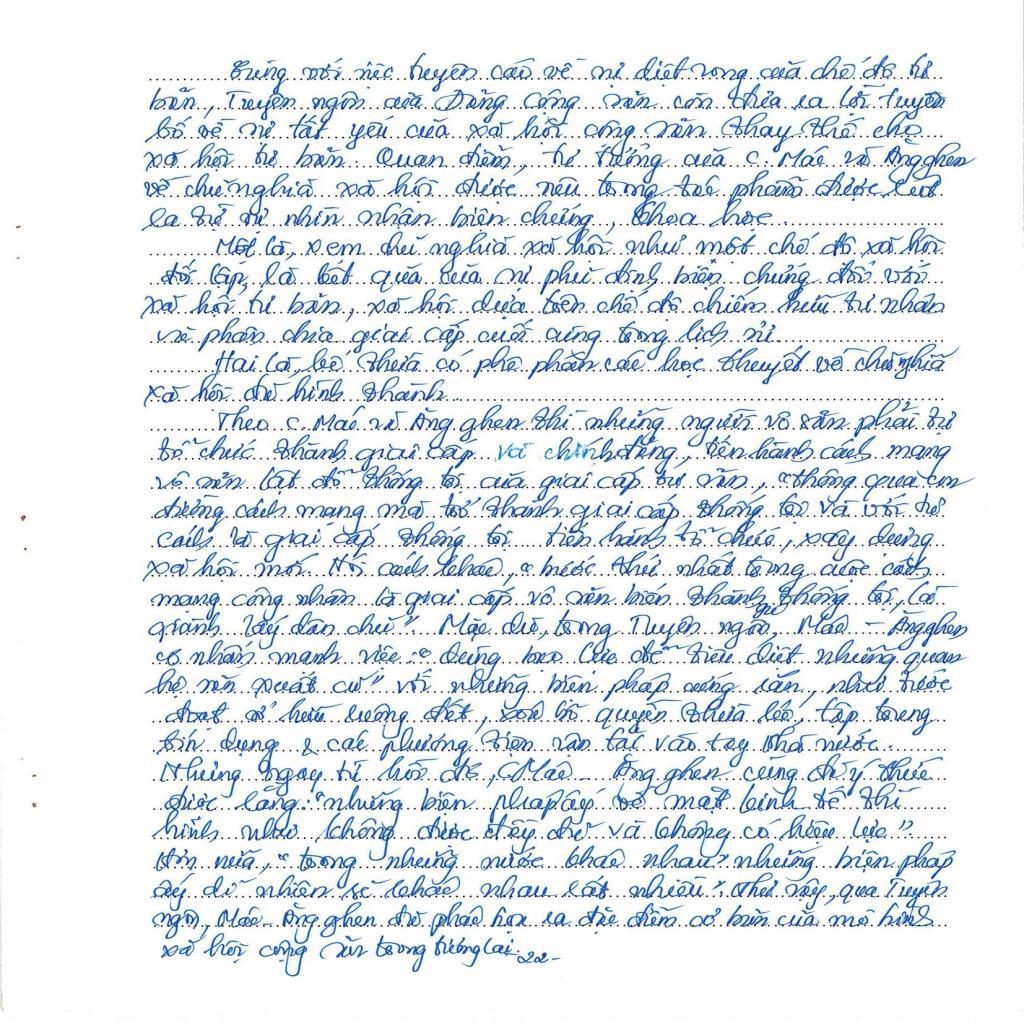 Cùng với việc tuyên cáo về sự diệt vong của chế độ tư
bản, Tuyên ngôn của Đảng Cộng sản còn đưa ra lời tuyên
bố về sự tất yếu của xã hội cộng sản thay thế cho
xã hội tư bản. Quan điểm, tư tưởng của C. Mác và Ăngghen
về chủ nghĩa xã hội được nêu trong tác phẩm được
ra từ sự nhìn nhận biện chứng, khoa học.
Một là, xem chủ nghĩa xã hội như một chế độ xã hội
đối lập, là kết quả của sự phủ định biện chứng đối với
xã hội tư bản, xã hội dựa trên chế độ chiếm hữu tư nhân
và phân chia giai cấp cuối cùng trong lịch sử.
Hai là, kế thừa có phê phán các học thuyết về chủ nghĩa
xã hội đã hình thành
Theo C. Mác và Ăng ghen thì những người vô sản phải tự
tổ chức thành giai cấp và chính đảng, tiến hành cách mạng
vô sản lật đổ thống trị của giai cấp tư sản, "thông qua con
đường cách mạng mà trở thành giai cấp thống trị và với tư
cách là giai cấp thống trị tiến hành tổ chức, xây dựng
xã hội mới. Nói cách khác, "bước thứ nhất trong cuộc cách
mạng công nhân là giai cấp vô sản biến thành gc thống trị, là
giành lấy dân chủ". Mặc dù, trong Tuyên ngôn, Mác - Ăngghen
có nhấn mạnh việc: "dùng bạo lực để tiêu diệt những quan
hệ sản xuất cũ" với những biện pháp cứng rắn, như tước
đoạt sở hữu ruộng đất, xóa bỏ quyền thừa kế, tập trung
tín dụng & các phương tiện vận tải vào tay nhà nước.
Nhưng ngay từ hồi đó, C.Mác - Ăng ghen cũng đã ý thức
được rằng: "những biện pháp ấy về mặt kinh tế thì
hình như không được đầy đủ và không có hiệu lực".
Hơn nữa, "trong những nước khác nhau" những biện pháp
ấy dĩ nhiên sẽ khác nhau rất nhiều". Như vậy, qua Tuyên
ngôn, Mác - Ăng ghen đã phác họa ra đặc điểm cơ bản của mô hình
xã hội cộng sản trong tương lai. 22-